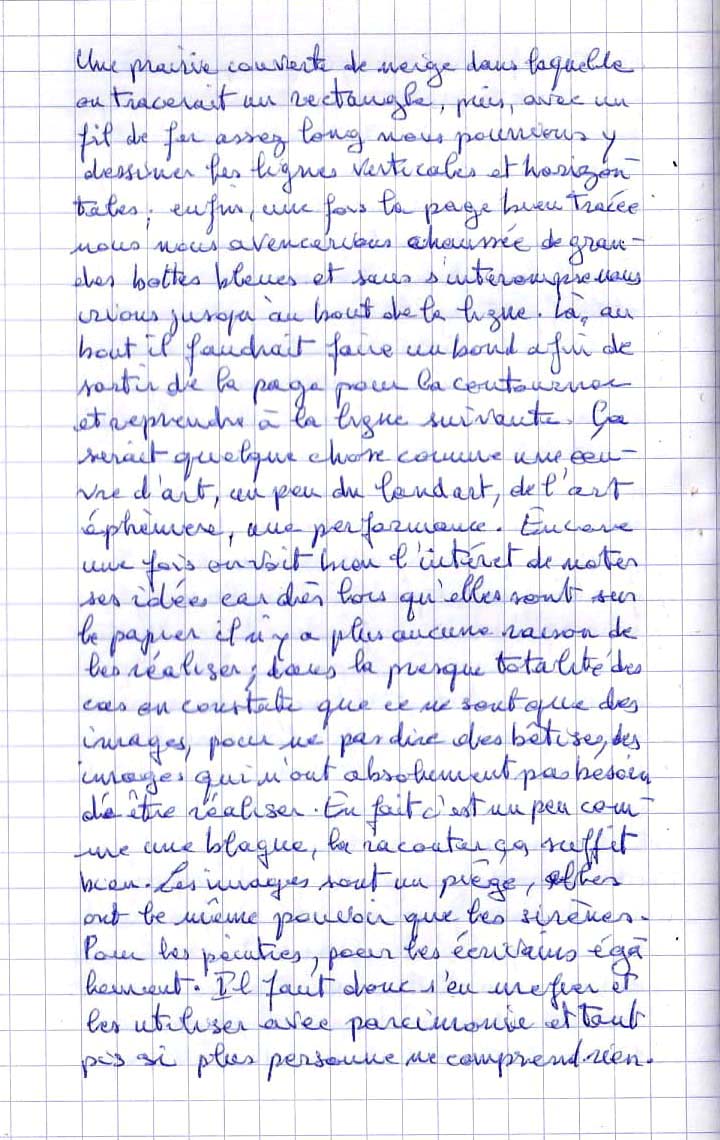 Une prairie couverte de neige dans laquelle
on tracerait un rectangle, puis, avec un
fil de fer assez long nous pourrions y
dessiner les lignes verticales et horizon-
tales; enfin, une fois la page bien tracée
nous nous avencerions chaussée de gran-
des bottes bleues et sans s'interompre nous
irions jusqu'au bout de la ligne. Là, au
bout il faudrait faire un bond afin de
sortir de la page pour la contourner
et reprendre à la ligne suivante. Ça
serait quelque chose comme une oeu-
vre d'art, un peu du landart, de l'art
éphèmere, une performance. Encore
une fois on voit bien l'intéret de noter
ses idées car dès lors qu'elles sont sur
le papier il n'y a plus aucune raison de
les réaliser; dans la presque totalité des
cas on constate que ce ne sont que des
images, pour ne pas dire des bêtises, des
images qui n'ont absolument pas besoin
de être réaliser. En fait c'est un peu com-
me une blague, la raconter ça suffit
bien. Les images sont un piège, elles
ont le même pouvoir que les sirènes.
Pour les peintres, pour les écrivains éga
lement. Il faut donc s'en mefier et
les utiliser avec parcimonie et tant
pis si plus personne ne comprend rien.